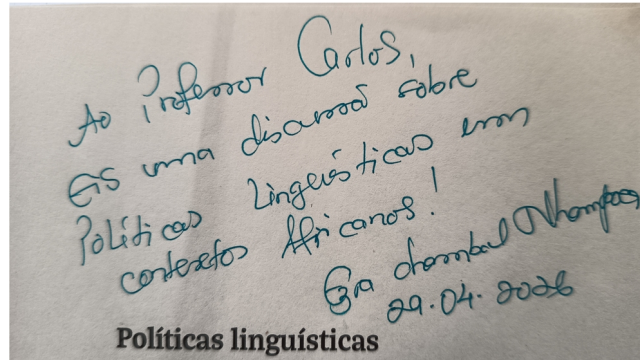 Ao Professor Carlos,
Eis uma discussão sobre
Políticas Linguísticas em
contextos Africanos!
29.04.2026
Políticas linguísticas